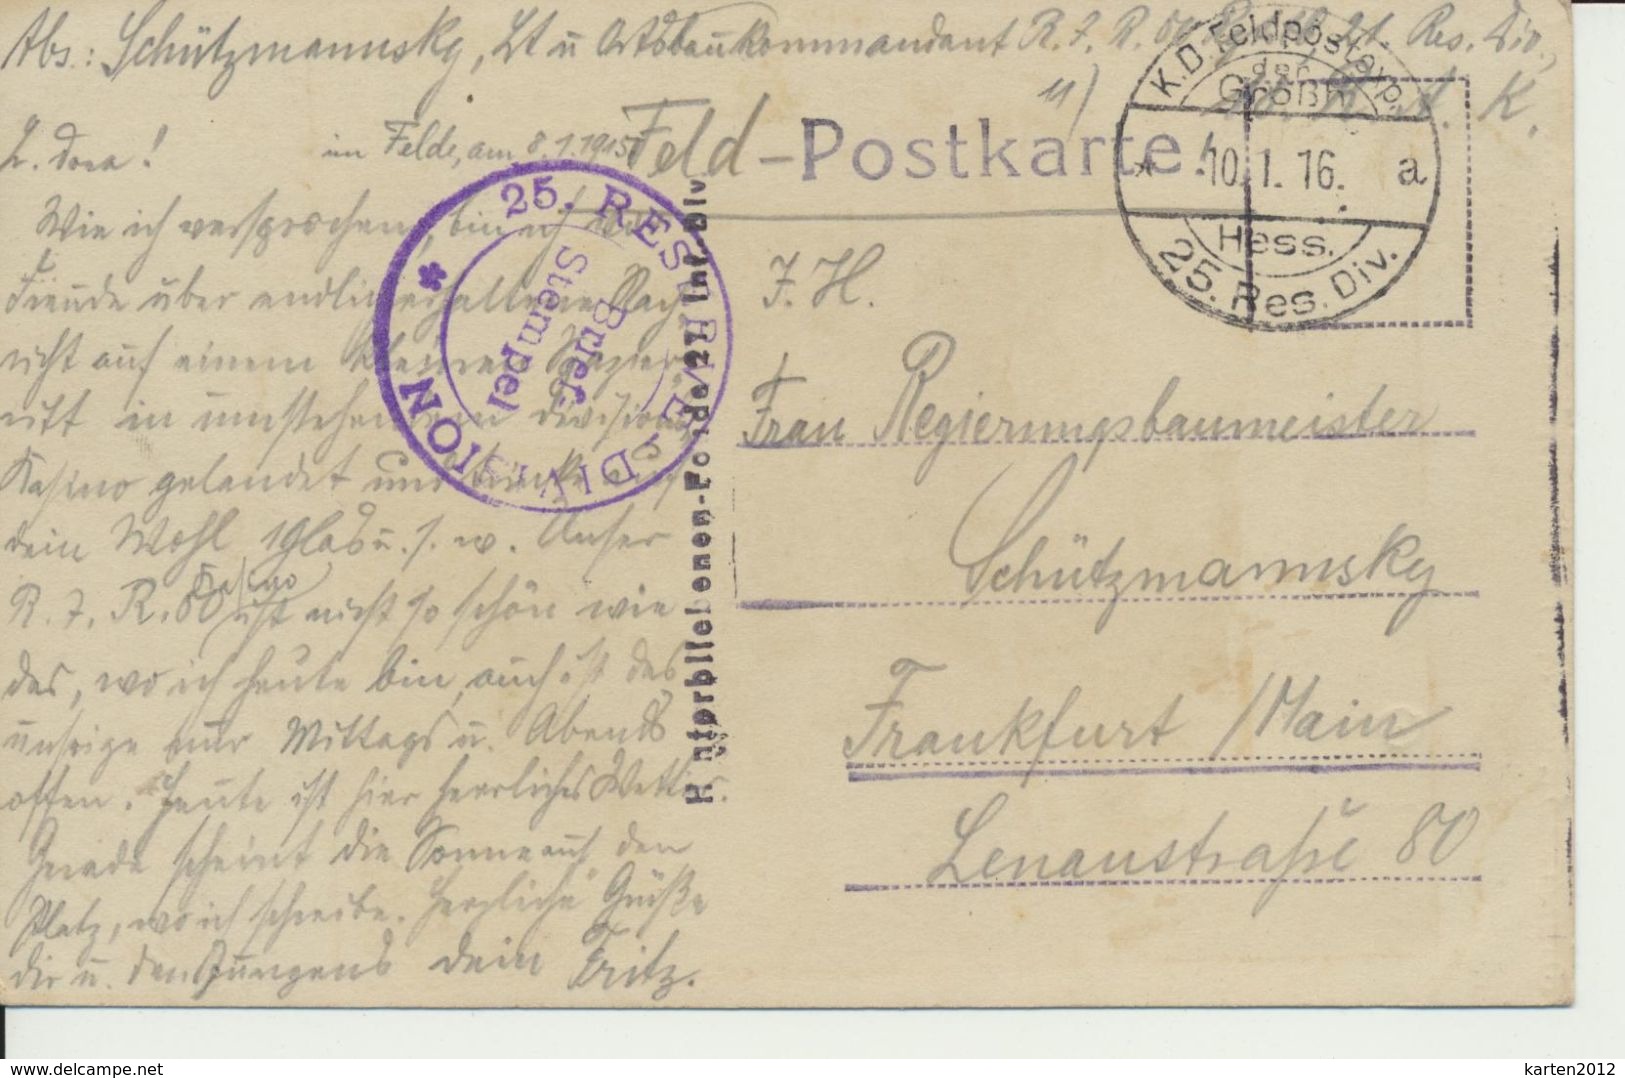 Abs.: Schützmannsky, Lt u Ortsbaukommandant R. I. R. 80, 21. Res. Div.,
K.D. Feldpostexp.
der
Großh.
Hess.
25. Res. Div.
* 10.1.16. a
Feld-Postkarte!
L. Dora! im Felde, am 8.1.1915
Wie ich versprochen, bin ich
Freude über endlich erhaltene Nach-
richt auf einem kleinen Spazier-
ritt in umstehendem Divisions
Kasino gelandet und trinke auf
dein Wohl 1 Glas u. s. w. Unser
R. I. R. 80 Kasino ist nicht so schön wie
das, wo ich heute bin, auch ist das
unsrige nur Mittags u. Abends
offen. Heute ist hier herrliches Wetter.
Gerade scheint die Sonne auf den
Platz, wo ich schreibe. Herzliche Grüße
dir u. den Jungens dein Fritz.
25. RESERVE-DIVISION
Brief-
Stempel
Hinterbliebenen-Fonds 27 Inf. Div
F. H.
Frau Regierungsbaumeister
Schützmannsky
Frankfurt / Main
Lenaustraße 80
karten2012